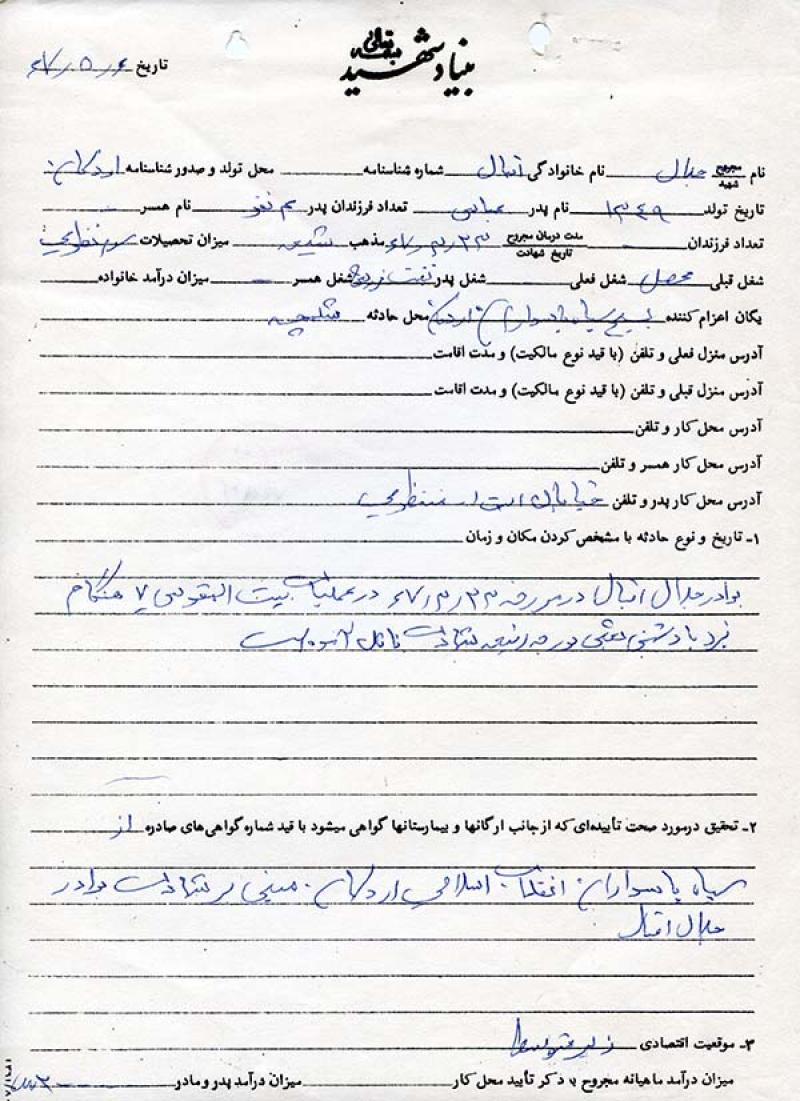 بسمه تعالی
بنیاد شهید
تاریخ ۶۷٫۵٫۶
نام مجروح شهید جلال نام خانوادگی اقبال شماره شناسنامه محل تولد و صدور شناسنامه اردکان
تاریخ تولد ۱۳۴۹ نام پدر عباس تعداد فرزندان پدر نفر نام همسر
تعداد فرزندان مدت درمان مجروح تاریخ شهادت ۶۷٫۳٫۲۳ مذهب شیعه میزان تحصیلات سوم نظری
شغل قبلی محصل شغل فعلی شغل پدر نفت فروش شغل همسر میزان درآمد خانواده
یکان اعزام کننده بسیج سپاه پاسداران اردکان محل حادثه شلمچه
آدرس منزل فعلی و تلفن (با قید نوع مالکیت) و مدت اقامت
آدرس منزل قبلی و تلفن (با قید نوع مالکیت) و مدت اقامت
آدرس محل کار و تلفن
آدرس محل کار همسر و تلفن
آدرس محل کار پدر و تلفن خیابان
۱ـ تاریخ و نوع حادثه با مشخص کردن مکان و زمان
برادر جلال اقبال در مورخه ۶۷٫۳٫۲۳ در عملیات بیت المقدس ۷ هنگام
نبرد با دشمن بعثی بدرجه رفیعه شهادت نائل آمده است
۲ـ تحقیق درمورد صحت تأییده‌ای که از جانب ارگانها و بیمارستانها گواهی میشود با قید شماره گواهی‌های صادره از
سپاه پاسداران انقلاب اسلامی اردکان مبنی بر شهادت برادر
جلال اقبال
۳ـ موقعیت اقتصادی زیر متوسط
میزان درآمد ماهیانه مجروح با ذکر تأیید محل کار میزان درآمد پدر و مادر